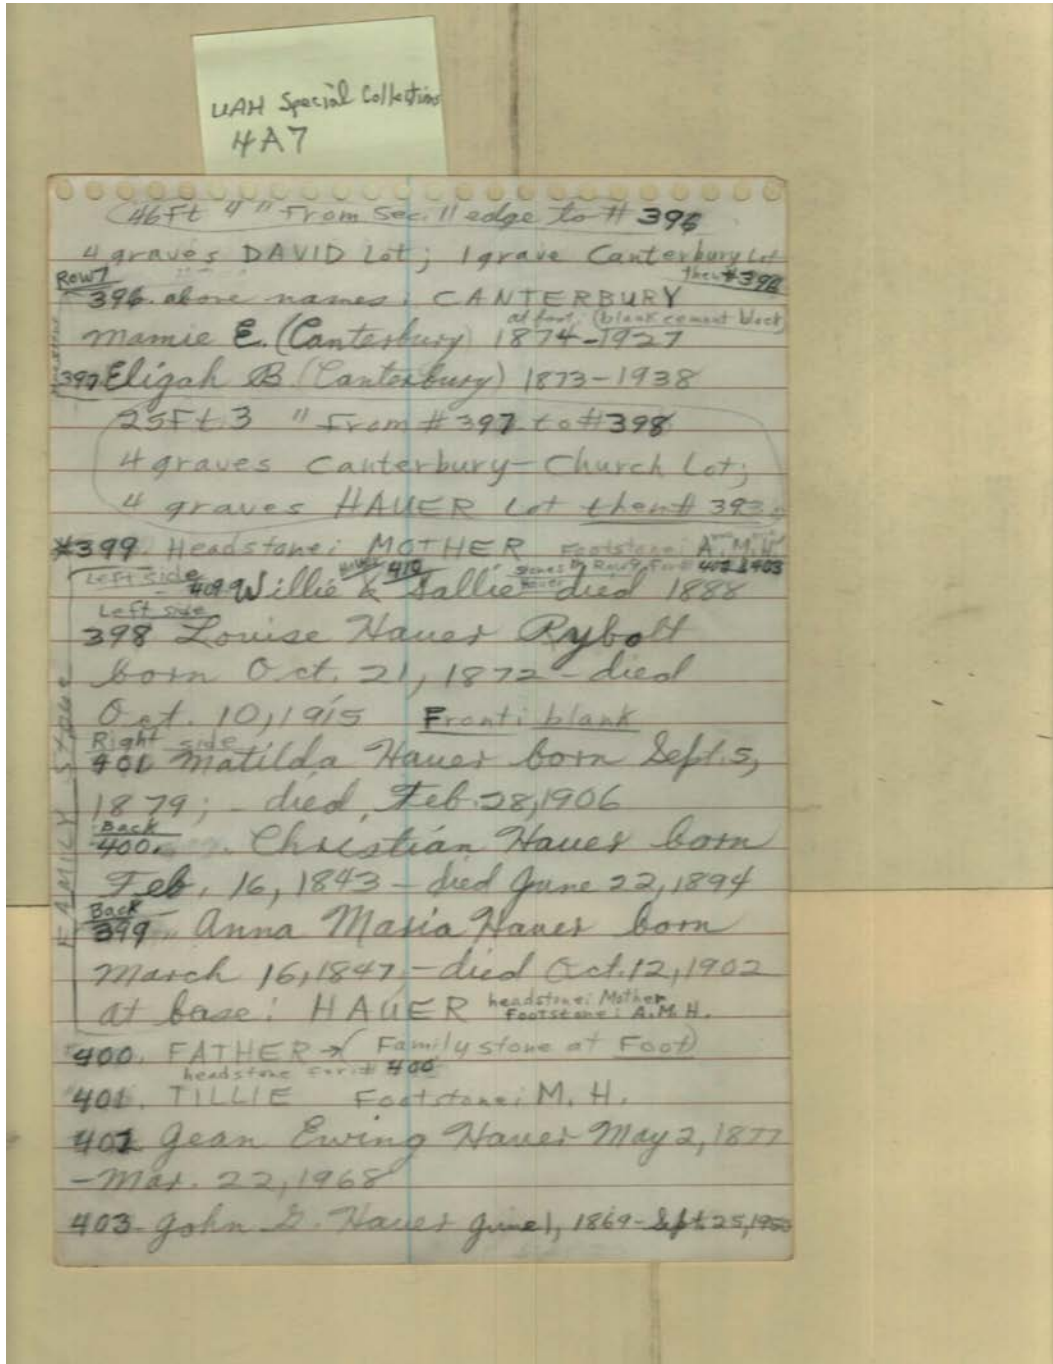 UAH Special Collections
4A7
(46Ft 4 " From Sec. 11 edge to # 396
4 graves DAVID Lot; 1 grave Canterbury Lot
then #396
Row 7
396. above names: CANTERBURY
at foot: (blank cement block)
Mamie E. (Canterbury) 1874-1927
397 Eligah B (Canterbury) 1873-1938
25Ft. 3 " From # 397 to # 398
4 graves Canterbury-Church Lot;
4 graves HAUER Lot then #
#399. Headstone: MOTHER Footstone: A. M. H.
Left side stones in Row 9 For # 402 & 403
409 Willie & 410 Sallie Hauer died 1888
Left side
398 Louise Hauer Rybolt
born Oct. 21, 1872 - died
Oct. 10, 1915 Front: blank
Right side
401 Matilda Hauer born Sept. 5,
1879; - died Feb. 28, 1906
Back
400. Christian Hauer born
Feb. 16, 1843 - died June 22, 1894
Back
399 Anna Maria Hauer born
March 16, 1847, - died Oct. 12, 1902
at base: HAUER headstone: Mother
Footstone: A. M. H.
FAMILY Stone
400. FATHER → (Family stone at Foot)
headstone for: # 400
401. TILLIE Footstone: M. H.
402 Jean Ewing Hauer May 2, 1877
- Mar. 22, 1968
403- John G. Hauer June 1, 1869 - Sept. 25,